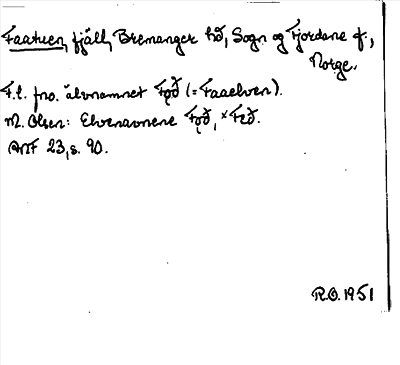 Faatuen, fjäll, Bremanger hd, Sogn og Fjordane f.,
Norge.
F.l. fno. älvnamnet Fǫð (= Faaelven).
M. Olsen: Elvenavnene Fǫð, *Fǣð.
ANF 23, s. 90.
R.O. 1951